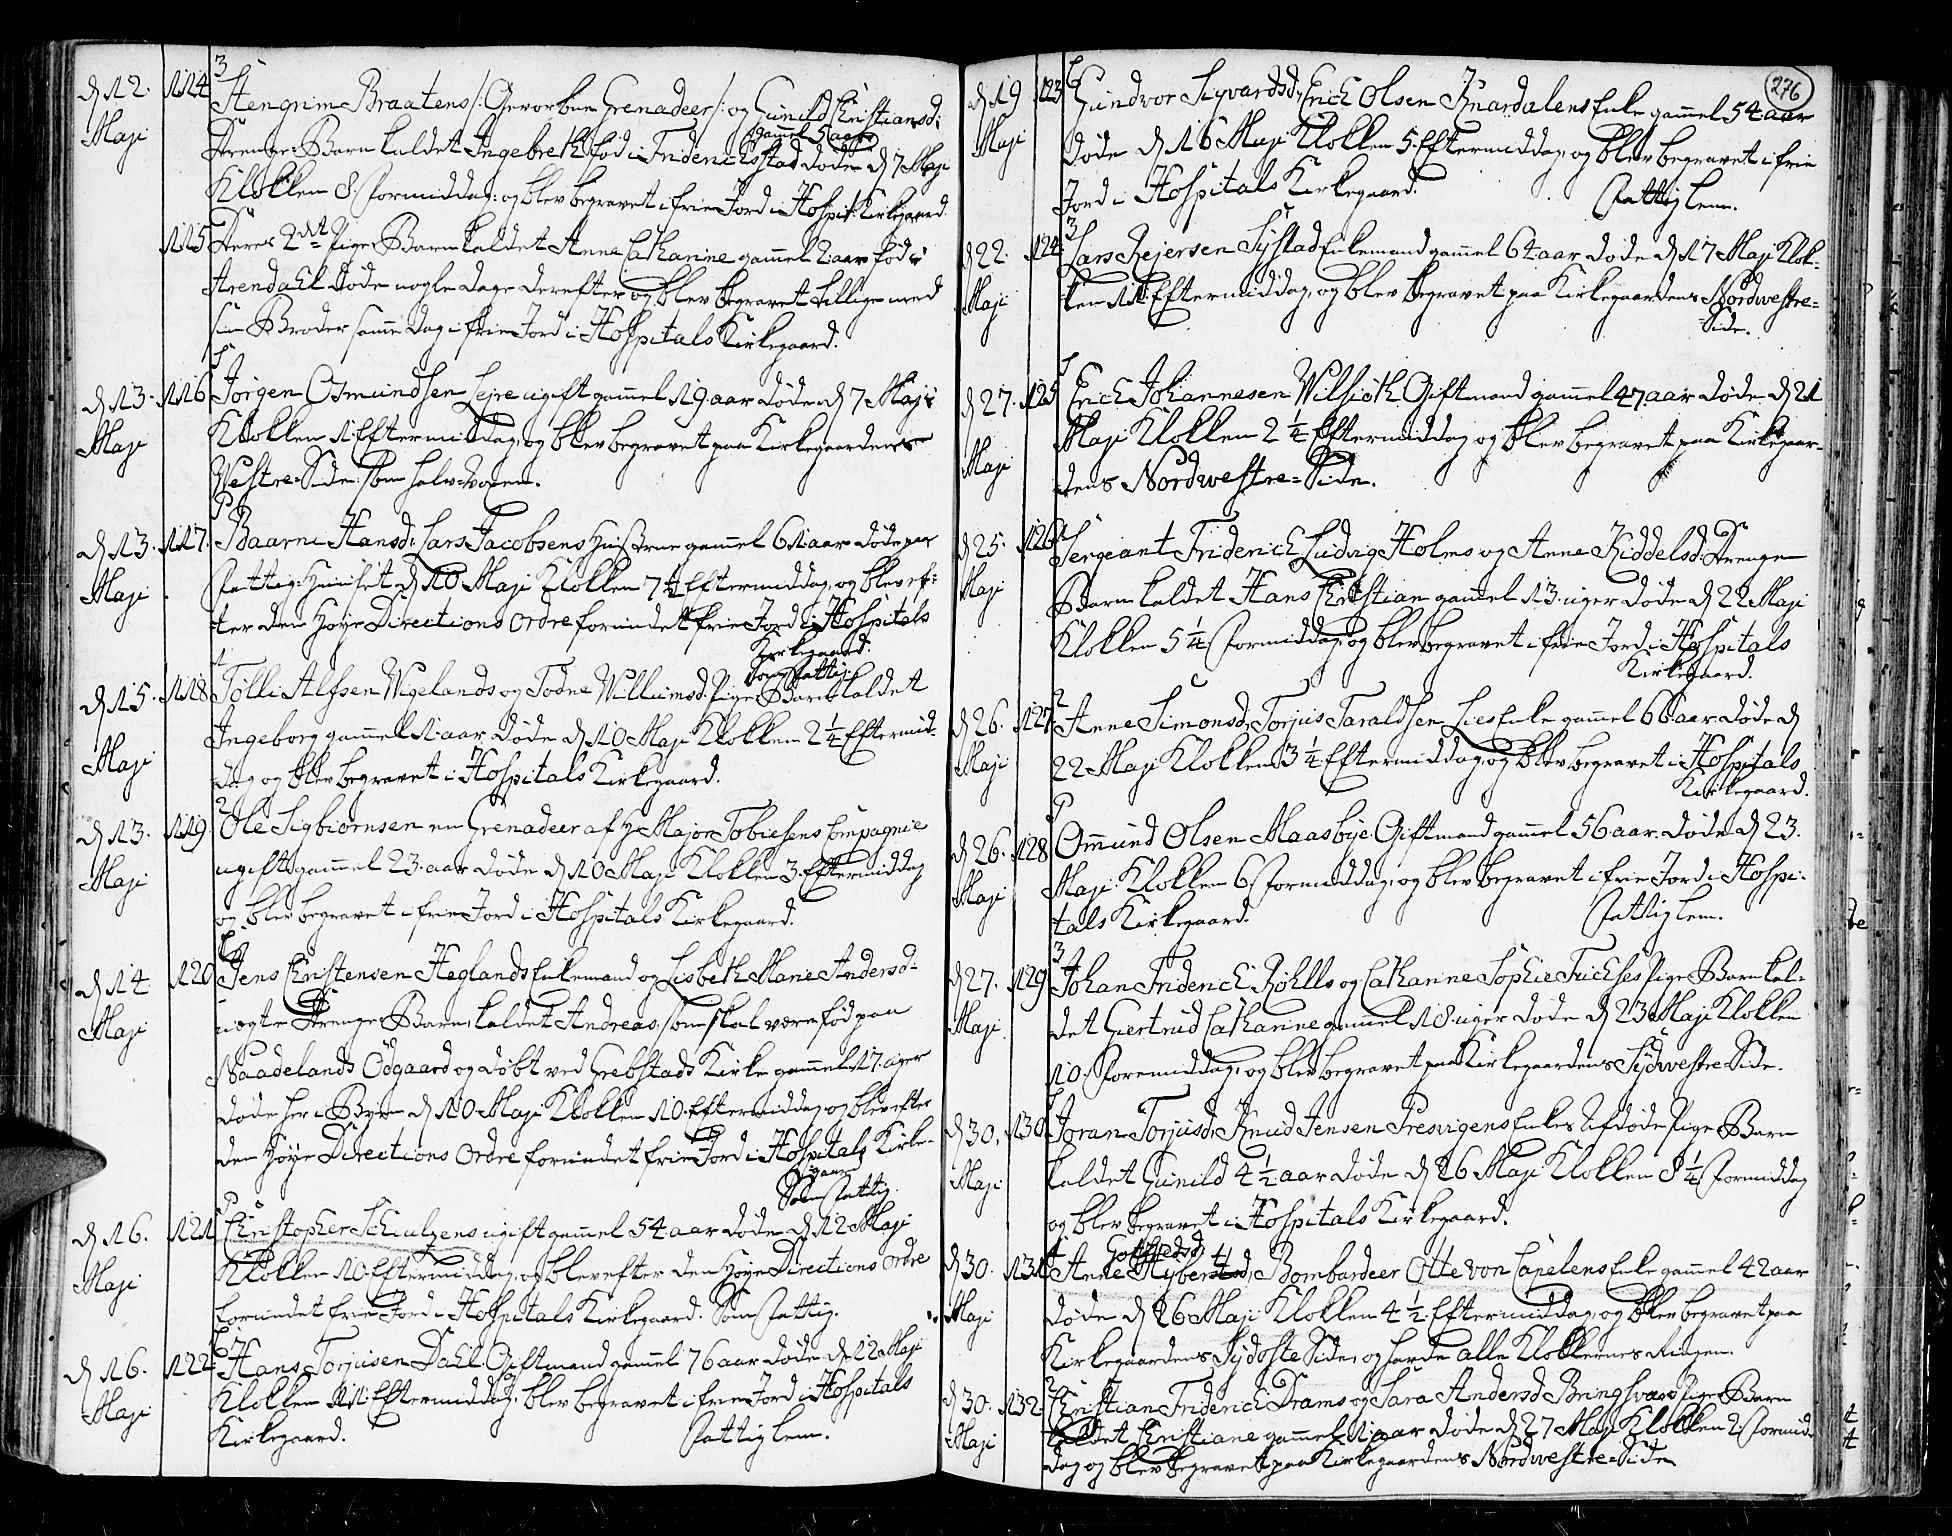 276
d 12. Maji
114
3
Stengrim Braatens /: Gevorben Grenadeer :/ og Gunild Christiansd:
gammel 5 aar
Drenge-Barn kaldet Ingebreth fød i Friderichsstad døde d 7 Maji
Klokken 8. Formiddag: og blev begravet i frie Jord i Hospit: Kirkegaard.
115
Deres 2det Pige Barn kaldet Anne Catharine gamel 2 aar fød i
Arendahl døde nogle dage derefter og blev begravet tillige med
sin Broder samme Dag i frie Jord i Hospitals Kirkegaard.
d 13. Maji
116
Jørgen Osmundsen Lejre ugift gamel 19 aar døde d 7 Maji
Klokken 11 Eftermiddag, og blev begravet paa Kirkegaardens
Vestre-Side som halv-voxen.
d 13. Maji
117.
Baarni Hansd: Lars Jacobsens Hustrue gamel 61 aar døde paa
Fattig-Huuset d 10 Maji Klokken 7½ Eftermiddag, og blev ef-
ter den Høye Directions Ordre forundet frie Jord i Hospitals
Kirkegaard.
Som Fattig.
d 15. Maji
118
1
Tølli Alfsen Wigelands og Todne Willumsd: Pige-Barn kaldet
Ingeborg gamel 11 aar døde d 10 Maji Klokken 2¼ Eftermid-
dag og blev begravet i Hospitals Kirkegaard.
d 13. Maji
119.
2
Ole Sigbiørnsen en Grenadeer af Hr Major Tobiesens Compagnie
ugift gamel 23 aar døde d 10 Maji Klokken 3 Eftermiddag
og blev begravet i frie Jord i Hospitals Kirkegaard.
d 14 Maji
120
Jens Christensen Heglands Enkemand og Lisbeth Marie Andersd-
uægte Drenge-Barn, kaldet Andreas, som skal være fød paa
Naadelands Ødgaard og døbt ved Grebstads Kirke gamel 17 uger
døde her i Byen d 10 Maji Klokken 10 Eftermiddag og blev efter
den Høye Directions Ordre forundet frie Jord i Hospitals Kirke-
gaard
Som Fattig.
d 16. Maji
121
Christopher Schultzens ugift gamel 54 aar døde d 12 Maji
Klokken 10 Eftermiddag, og blev efter den Høye Directions Ordre
forundet frie Jord i Hospitals Kirkegaard. Som Fattig.
d 16. Maji
122
Hans Torjusen Dahl Giftmand gamel 76 aar døde d 12 Maji
Klokken 11 Eftermiddag, blev begravet i frie Jord i Hospitals
Kirkegaard. Fattig lem.
d 19 Maji
123
Gundvor Sigvardsd: Erich Olsen Knardalens Enke gamel 54 aar
døde d 16 Maji Klokken 5 Eftermiddag, og blev begravet i frie
Jord i Hospitals Kirkegaard. Fattig lem.
d 22. Maji
124
3
Lars Rejersen Systad Enkemand gamel 64 aar døde d 17 Maji Klok-
ken 11 Eftermiddag, og blev begravet paa Kirkegaardens Nordwestre-
Side.
d 27. Maji
125
Erich Johannesen Willsiøth Giftmand gamel 47 aar døde d 21
Maji Klokken 2¼ Eftermiddag og blev begravet paa Kirkegaar-
dens Nordwestre-Side.
d 25. Maji
126
Sergeant Friderich Ludvig Holms og Anne Kiddelsd: Drenge
Barn kaldet Hans Christian gamel 13 uger døde d 22 Maji
Klokken 5¼ Formiddag, og blev begravet i frie Jord i Hospitals
Kirkegaard.
d 26. Maji
127
2
Anne Simonsd: Torjus Taraldsen Lies Enke gamel 66 aar døde d
22 Maji Klokken 3¼ Eftermiddag, og blev begravet i Hospitals
Kirkegaard.
d 26. Maji
128
Ommund Olsen Maasbye Giftmand gamel 56 aar døde d 23.
Maji Klokken 6 Formiddag, og blev begravet i frie Jord i Hospi-
tals Kirkegaard. Fattig lem.
d 27. Maji
129
3
Johan Friderich Røhlls og Catharine Sophie Frichses Pige Barn kal-
det Giertrud Catharine gamel 18 uger døde d 23 Maji Klokken
10 Formiddag, og blev begravet paa Kirkegaardens Sydwestre Side.
d 30. Maji
130
Joran Torjusd: Knud Jensen Presvigens Enkes Afdøde Pige Barn
kaldet Gunild 4½ aar døde d 26 Maji Klokken 8¼ Formiddag
og blev begravet i Hospitals Kirkegaard.
d 30. Maji
131
Gotfredsd:
Anne Bombardeer Otte von Capelens Enke gamel 42 aar
døde d 26 Maji Klokken 4½ Eftermiddag, og blev begravet paa
Kirkegaardens Sydoste Side, og havde alle Klokkernes Ringen.
d 30. Maji
132
2
Christian Friderich Drams og Sara Andersd Bringsvær Pige Barn
kaldet Christiane gamel 11 aar døde d 27 Maji Klokken 2 Formid-
dag og blev begravet paa Kirkegaardens Nordwestre-Side